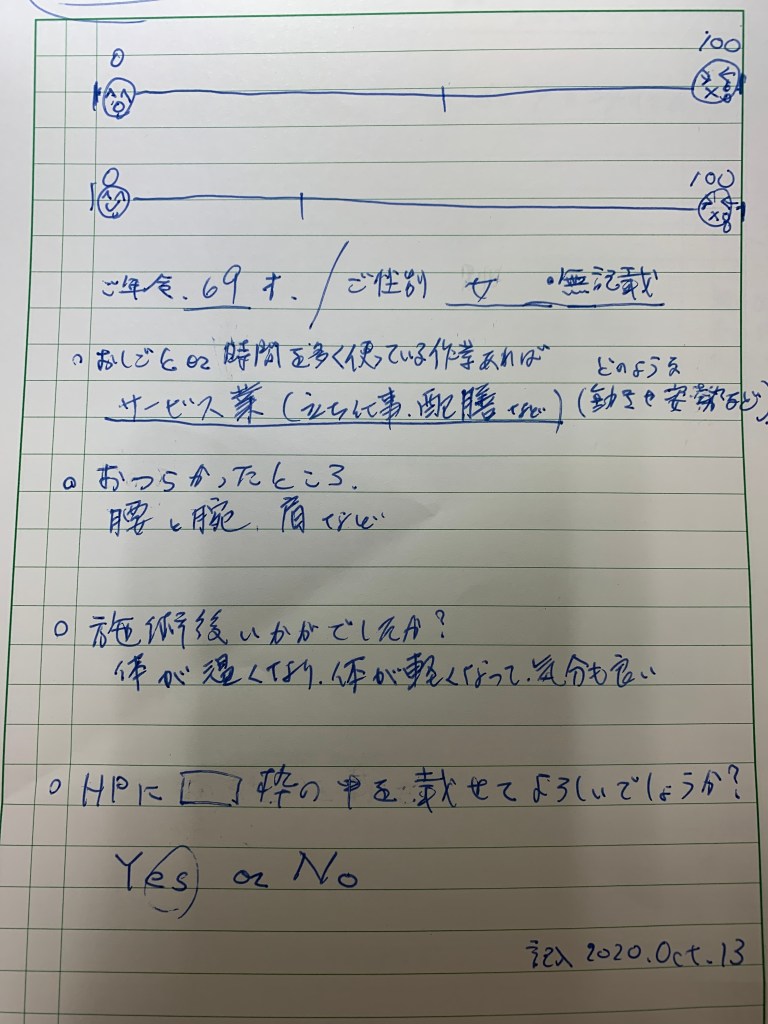 0 100
0 100
ご年令. 69 才. / ご性別 女 ・無記載
・おしごと or 時間を多く使っている作業あれば
どのような
サービス業 (立ち仕事. 配膳など) (動きや姿勢など)
○ おつらかったところ.
腰と腕. 肩など
○ 施術後いかがでしたか?
体が温くなり. 体が軽くなって. 気分も良い
○ HPに 枠の中を載せてよろしいでしょうか?
Yes or No
記入 2020.Oct.13